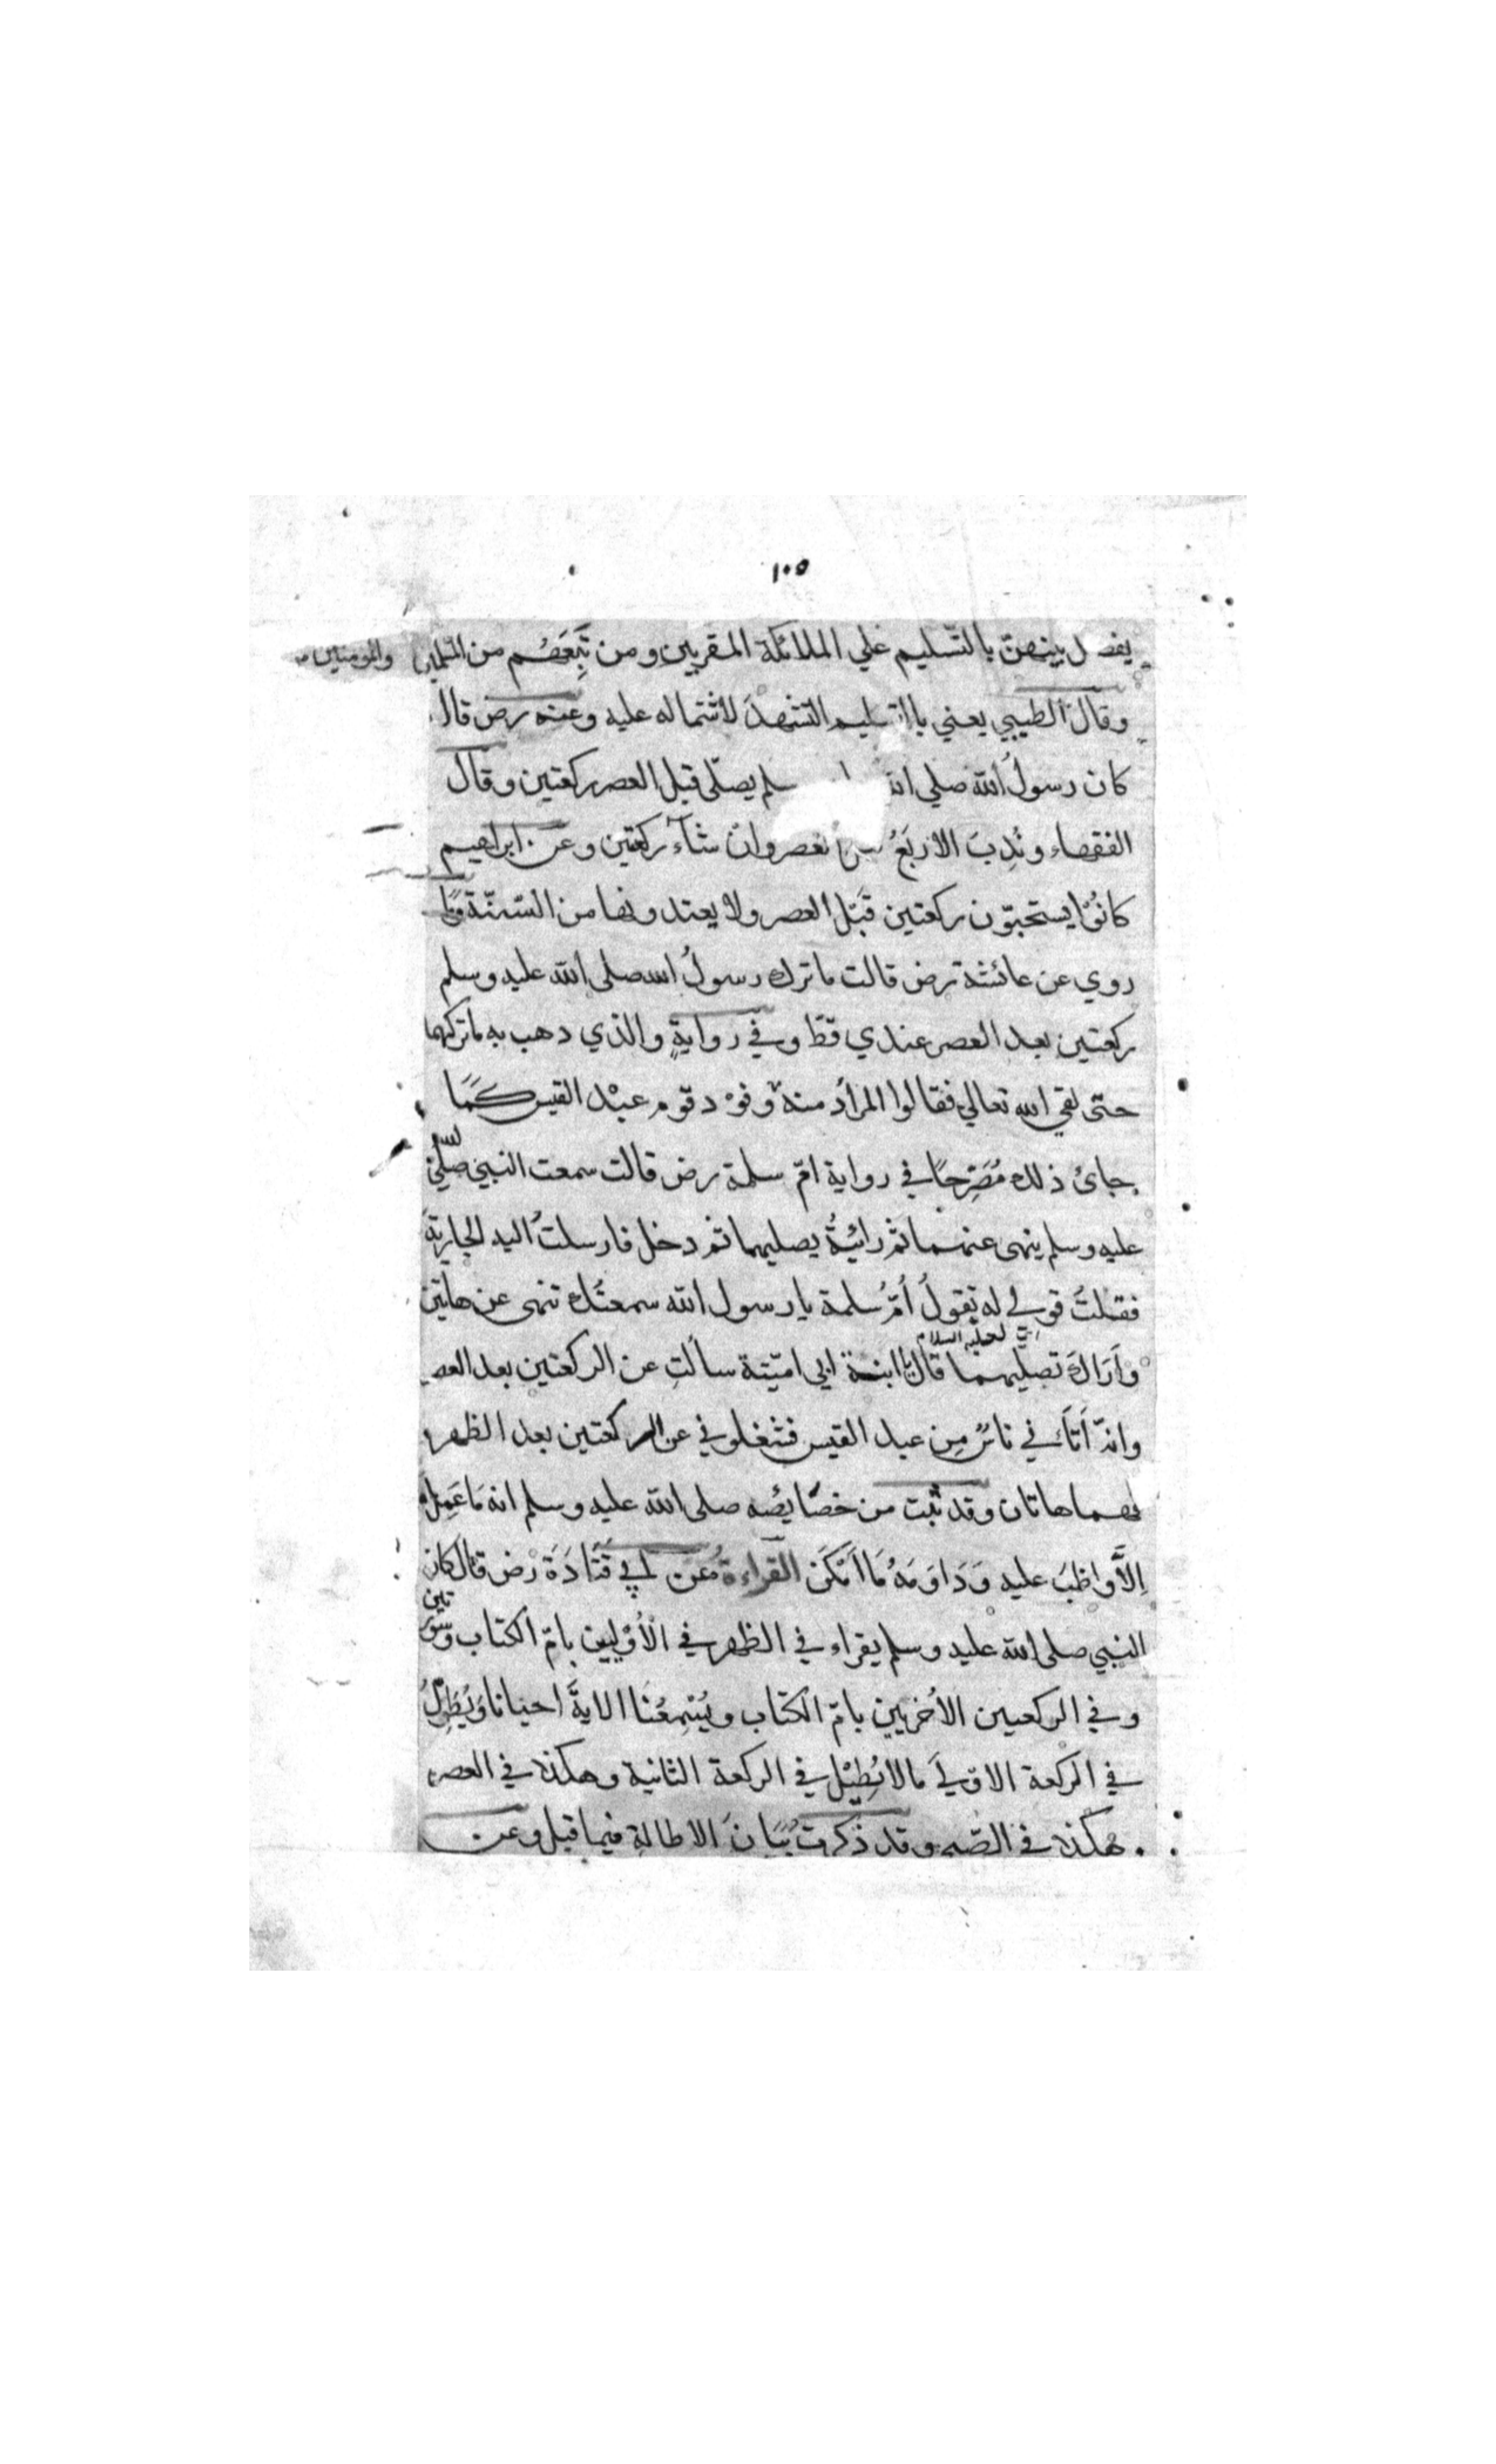 ١٠٥
يفصل بينهنّ بالتّسليم علي الملائكة المقربين ومن تَبِعَهُم من المسلمين والمؤمنين
وقال الطيبي يعني بالتسليم التشهدَ لاشتماله عليه وعنه رض قال
كان رسولُ الله صلي سلم يصلّى قبل العصر ركعتين وقال
الفقهاء ونُدِبَ الاربَعُ العصر وان شآء ركعتين وعن ابراهيم
كانُوْا يستحبّون ركعتين قَبْل العصر ولا يعتدونها من السّنّة
روي عن عائشة رض قالت ماترك رسولُ الله صلى الله عليه وسلم
ركعتين بعد العصر عندي قطّ وفي روايةٍ والذي ذهب به ماتركهما
حتّى لقي الله تعالي فقالوا المرادُ منه وفوْد قوم عبْد القيس كَمَا
جائ ذلك مُصَرِّحًا في رواية امّ سلمة رض قالت سمعت النبيَ صلّى الله
عليه وسلم ينهى عنهما ثم رائيتُهُ يصليهما ثم دخل فارسلتُ اليه الجاريةَ
فقلتُ قولي له تقولُ أُمّ سلمة يا رسول الله سمعتُك تنهى عن هاتين
وَاَرَاكَ تصلّيهما قَالَ اي عليه السلام يا ابنة ابي اميّة سألتِ عن الركعتين بعد العصر
وانّه اَتَانِي ناسٌ مِن عبد القيس فشغلوني عن الركعتين بعد الظهر
فهما هاتان وقد ثبت من خصَايصُه صلى الله عليه وسلم انه مَا عَمِلَ
اِلاَّ وَاظبَ عليه وَدَاوَمَهُ مَا اَمْكَنَ القراءة وعَن ابي قَتَادَةَ رض قال كان
النبي صلى الله عليه وسلم يقراء في الظهر في الْأُوْلَيَين بامّ الكتاب وسورتين
وفي الركعتين الأُخريين بامّ الكتاب ويُسْمِعُنَا الايةَ احيانا وَيُطَوِّلُ
في الركعة الاولي مالا يُطِيْل في الركعة الثانية وهكذا في العصر
وهكذا في الصّبح وقد ذكرتُ بَيَانَ الاطالةِ فيما قبل وعن